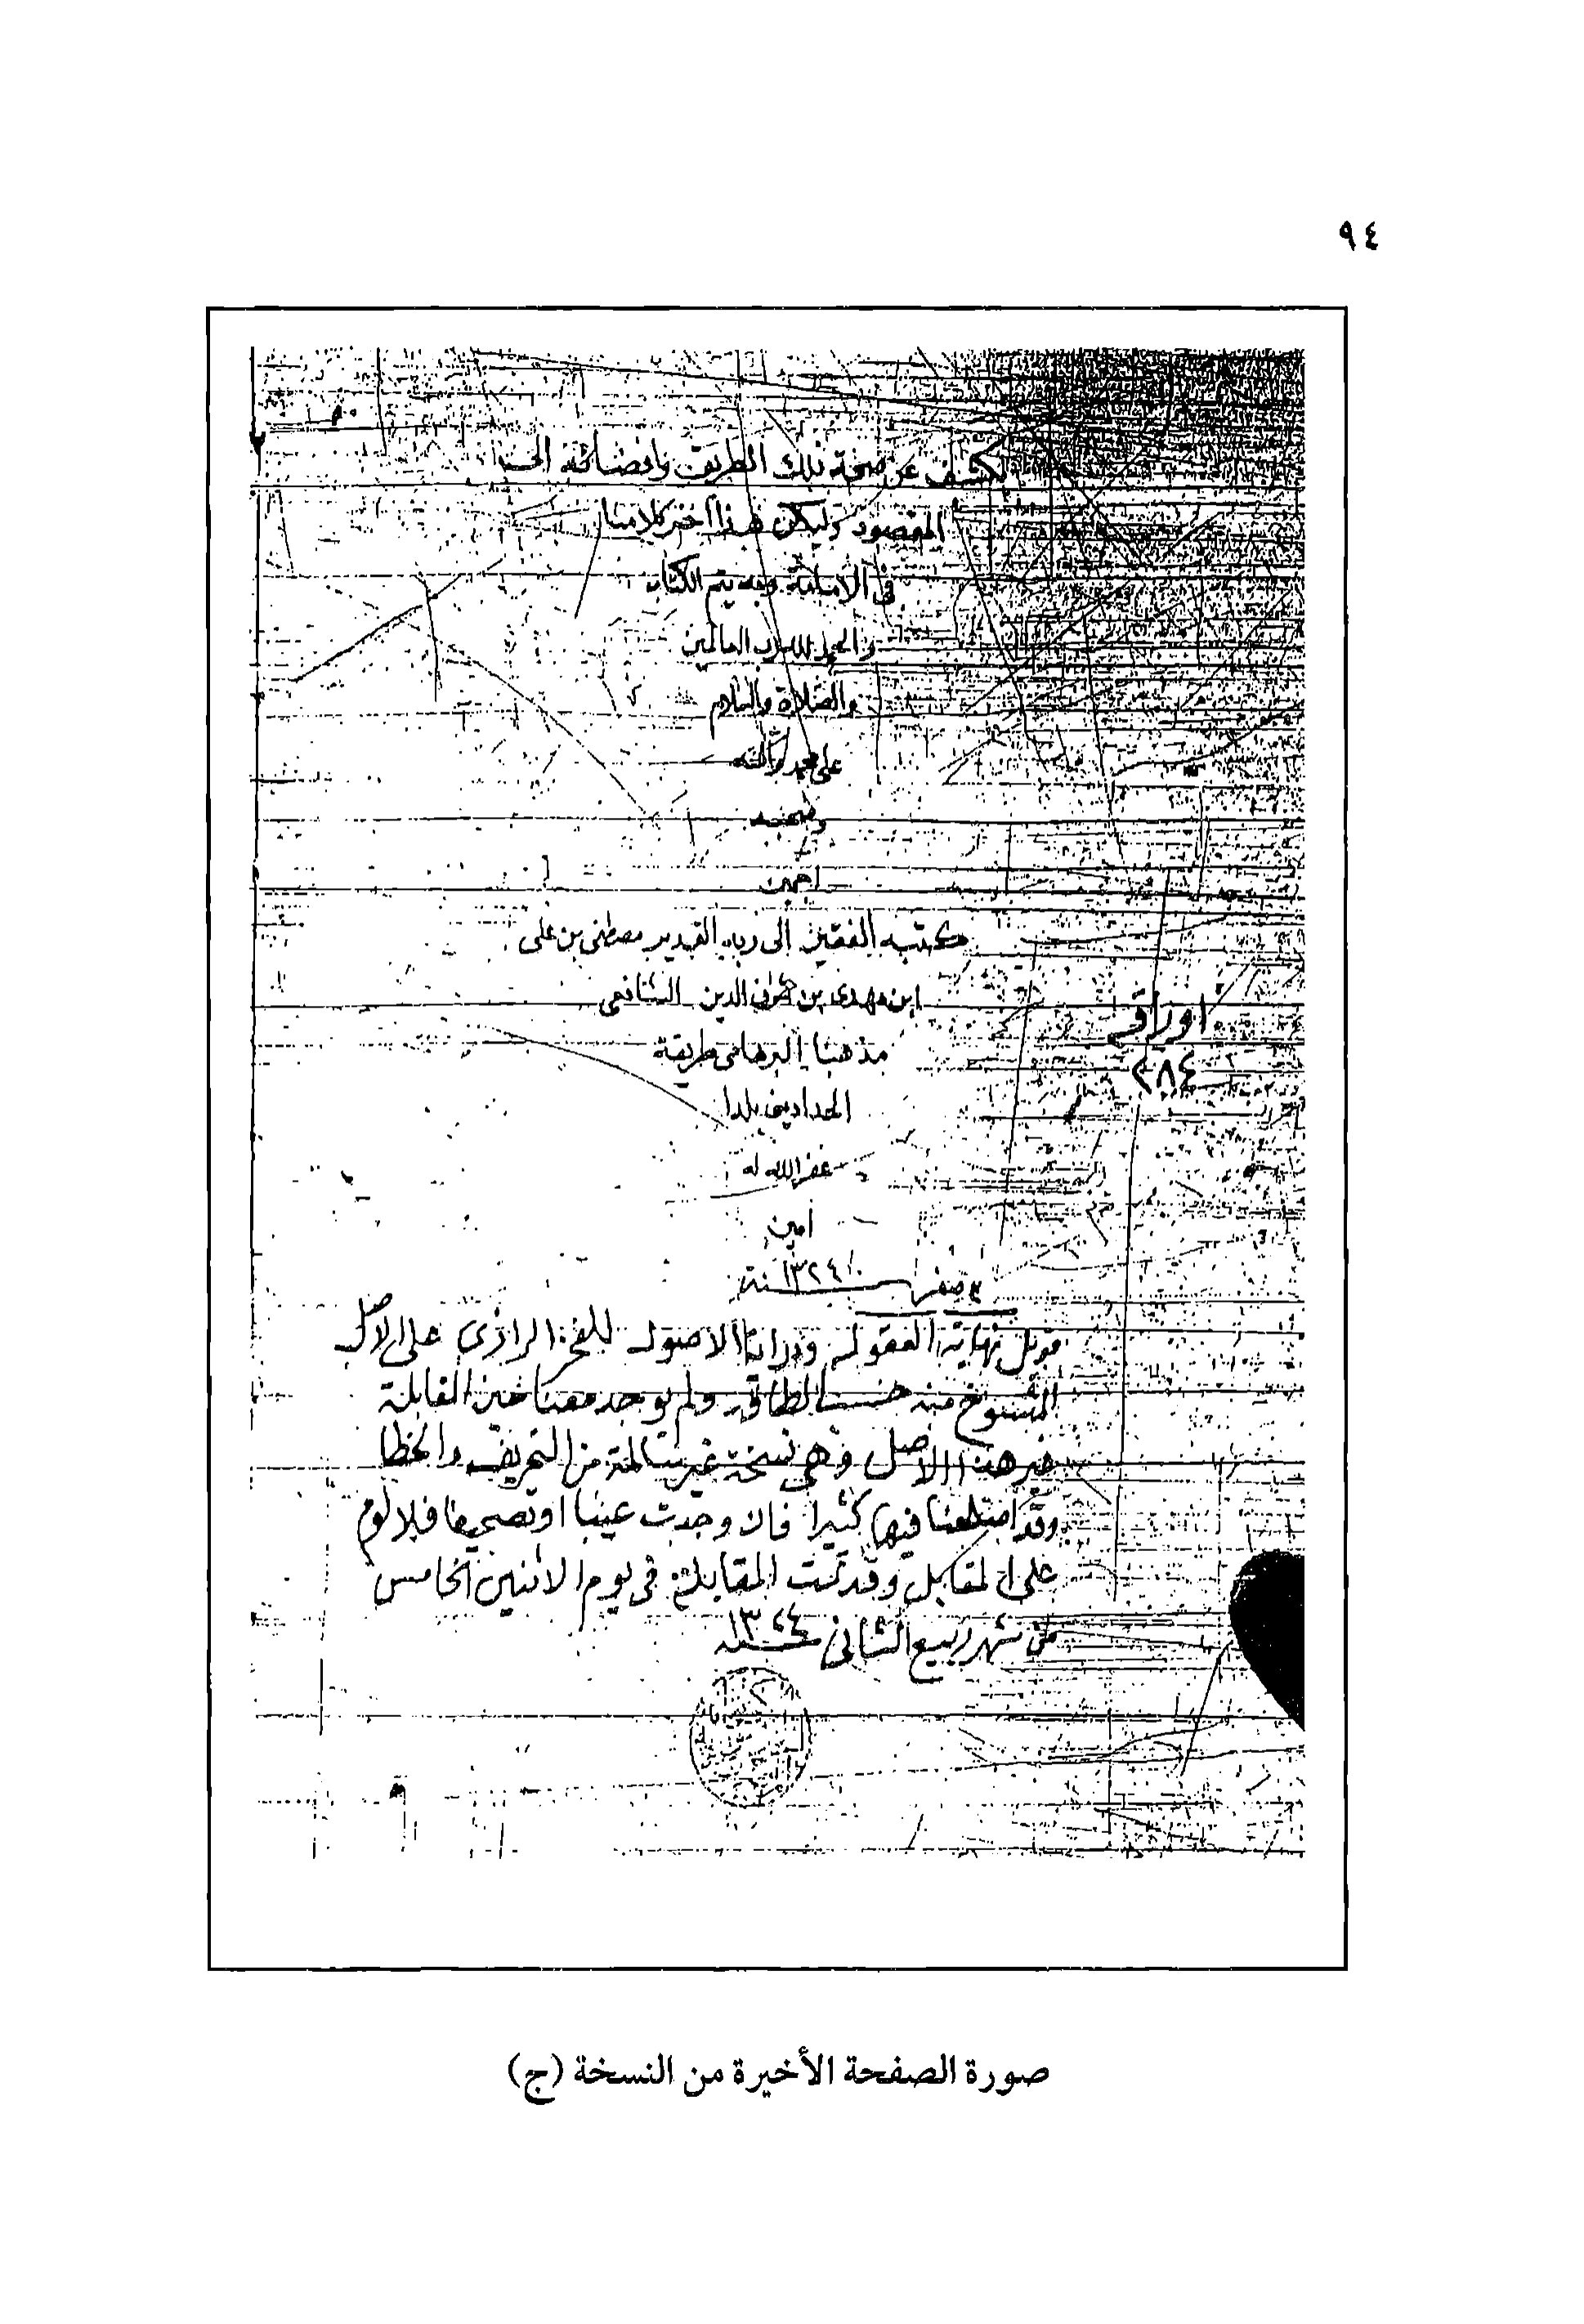 ٩٤
تكشف عن صحة تلك الطريقة وافضائه الى
المقصود وليكن هذا آخر كلامنا
فى الامامة وبه يتم الكتاب
والحمد لله رب العالمين
والصلاة والسلام
على محمد وآله
وصحبه
اجمعين
كتبه الفقير الى ربه القدير مصطفى بن على
ابن مهدى بن الدين الشافعى
مذهبا البرهامى طريقة
بلدا
غفر الله له
امين
صفر سنة ١٣٢٤
اوراق
٢٨٤
قوبل نهاية العقول ودراية الاصول للفخر الرازى على الاصل
المنسوخ منه حسب الطاقة ولم يوجد معنا حين المقابلة
غير هذا الاصل وهى نسخة غير سالمة من التحريف والخطا
وقد فيها كثيرا فان وجدت عيبا او تصحيفا فلا لوم
على المقابل وقد تمت المقابلة فى يوم الاثنين الخامس
من شهر ربيع الثانى سنة ١٣٢٤
صورة الصفحة الأخيرة من النسخة (ج)